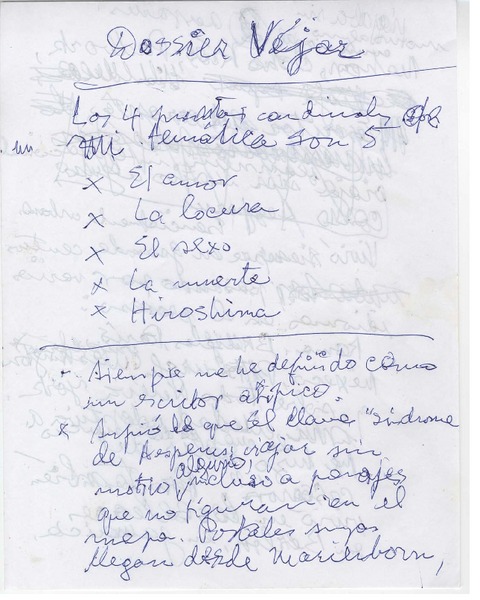 Dossier Véjar
Los 4 puntos cardinales de
mi temática son 5
x El amor
x La locura
x El sexo
x La muerte
x Hiroshima
Siempre me he definido como
un escritor atípico.
x Sufrió lo que él llama "síndrome
de Asperus, viajar sin
motivo alguno, incluso a parajes
que no figuran en el
mapa. Postales suyas
llegan desde Marienborn,